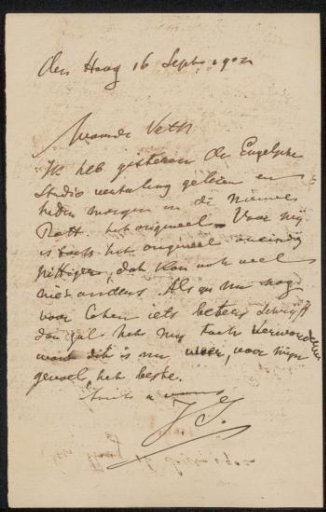 den Haag 16 Sept. 1902
Waarde Veth
Ik heb gisteren de Engelsche
Studio vertaling gelezen en
heden morgen in de nieuwe
Rott. het origineel. Voor mij
is toch het origineel oneindig
pittiger, dat kon ook wel
niet anders. Als je nu nog
voor Cohen iets beters schrijft
dan zal het mij toch verwonderen
want dit is nu weer, voor mijn
gevoel, het beste.
J. I.